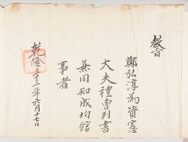 教
鄭弘淳為資憲
大夫禮曹判書
兼同知成均館
事者
乾隆三十三年六月十七日